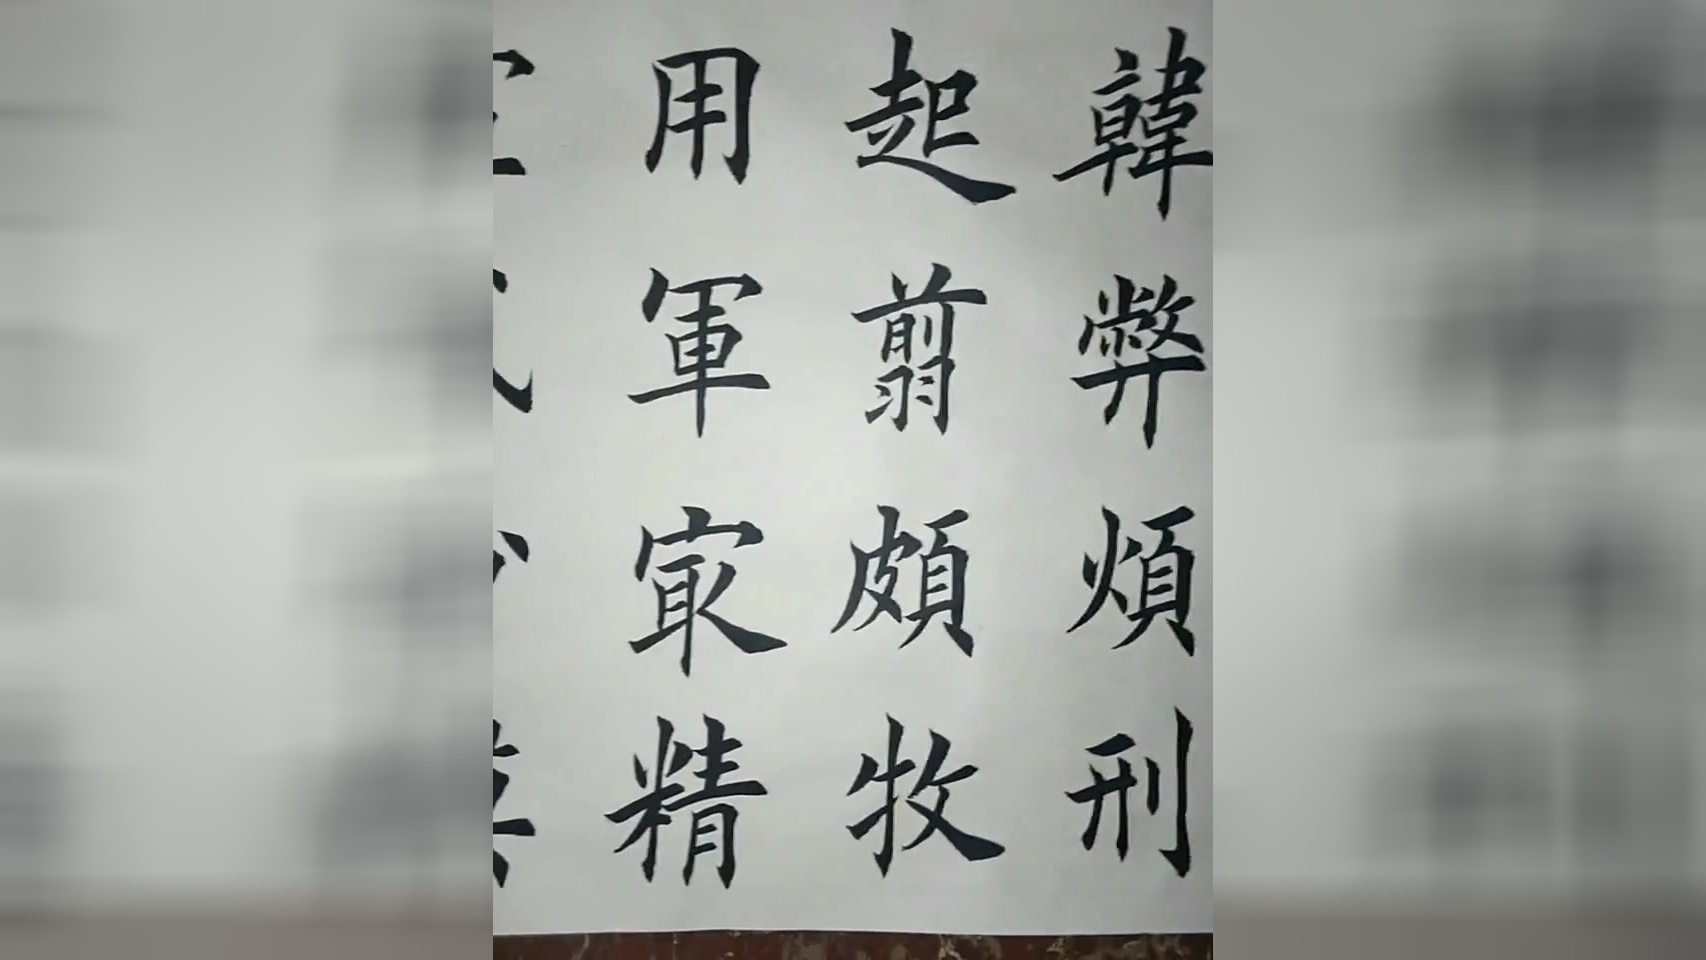 韓弊煩刑
起翦頗牧
用軍冣精